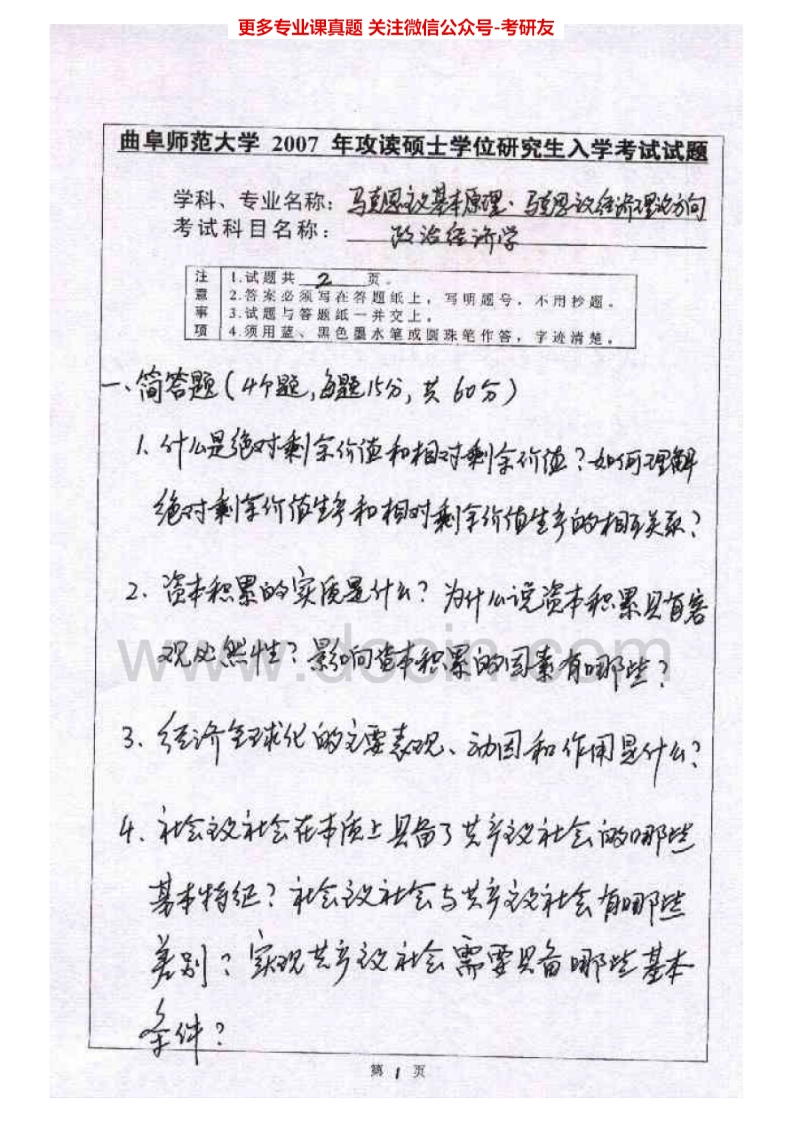 更多专业课真题 关注微信公众号-考研友
曲阜师范大学 2007 年攻读硕士学位研究生入学考试试题
学科、专业名称：马克思主义基本原理·马克思主义经济理论方向
考试科目名称：政治经济学
注意事项
1.试题共 2 页。
2.答案必须写在答题纸上，写明题号，不用抄题。
3.试题与答题纸一并交上。
4.须用蓝、黑色墨水笔或圆珠笔作答，字迹清楚。
一、简答题(4个题,每题15分,共60分)
1. 什么是绝对剩余价值和相对剩余价值?如何理解
绝对剩余价值生产和相对剩余价值生产的相互关系?
2. 资本积累的实质是什么?为什么说资本积累具有客
观必然性?影响资本积累的因素有哪些?
www.docin.com
3. 经济全球化的主要表现、动因和作用是什么?
4. 社会主义社会在本质上具备了共产主义社会的哪些
基本特征?社会主义社会与共产主义社会有哪些
差别?实现共产主义社会需要具备哪些基本
条件?
第 1 页